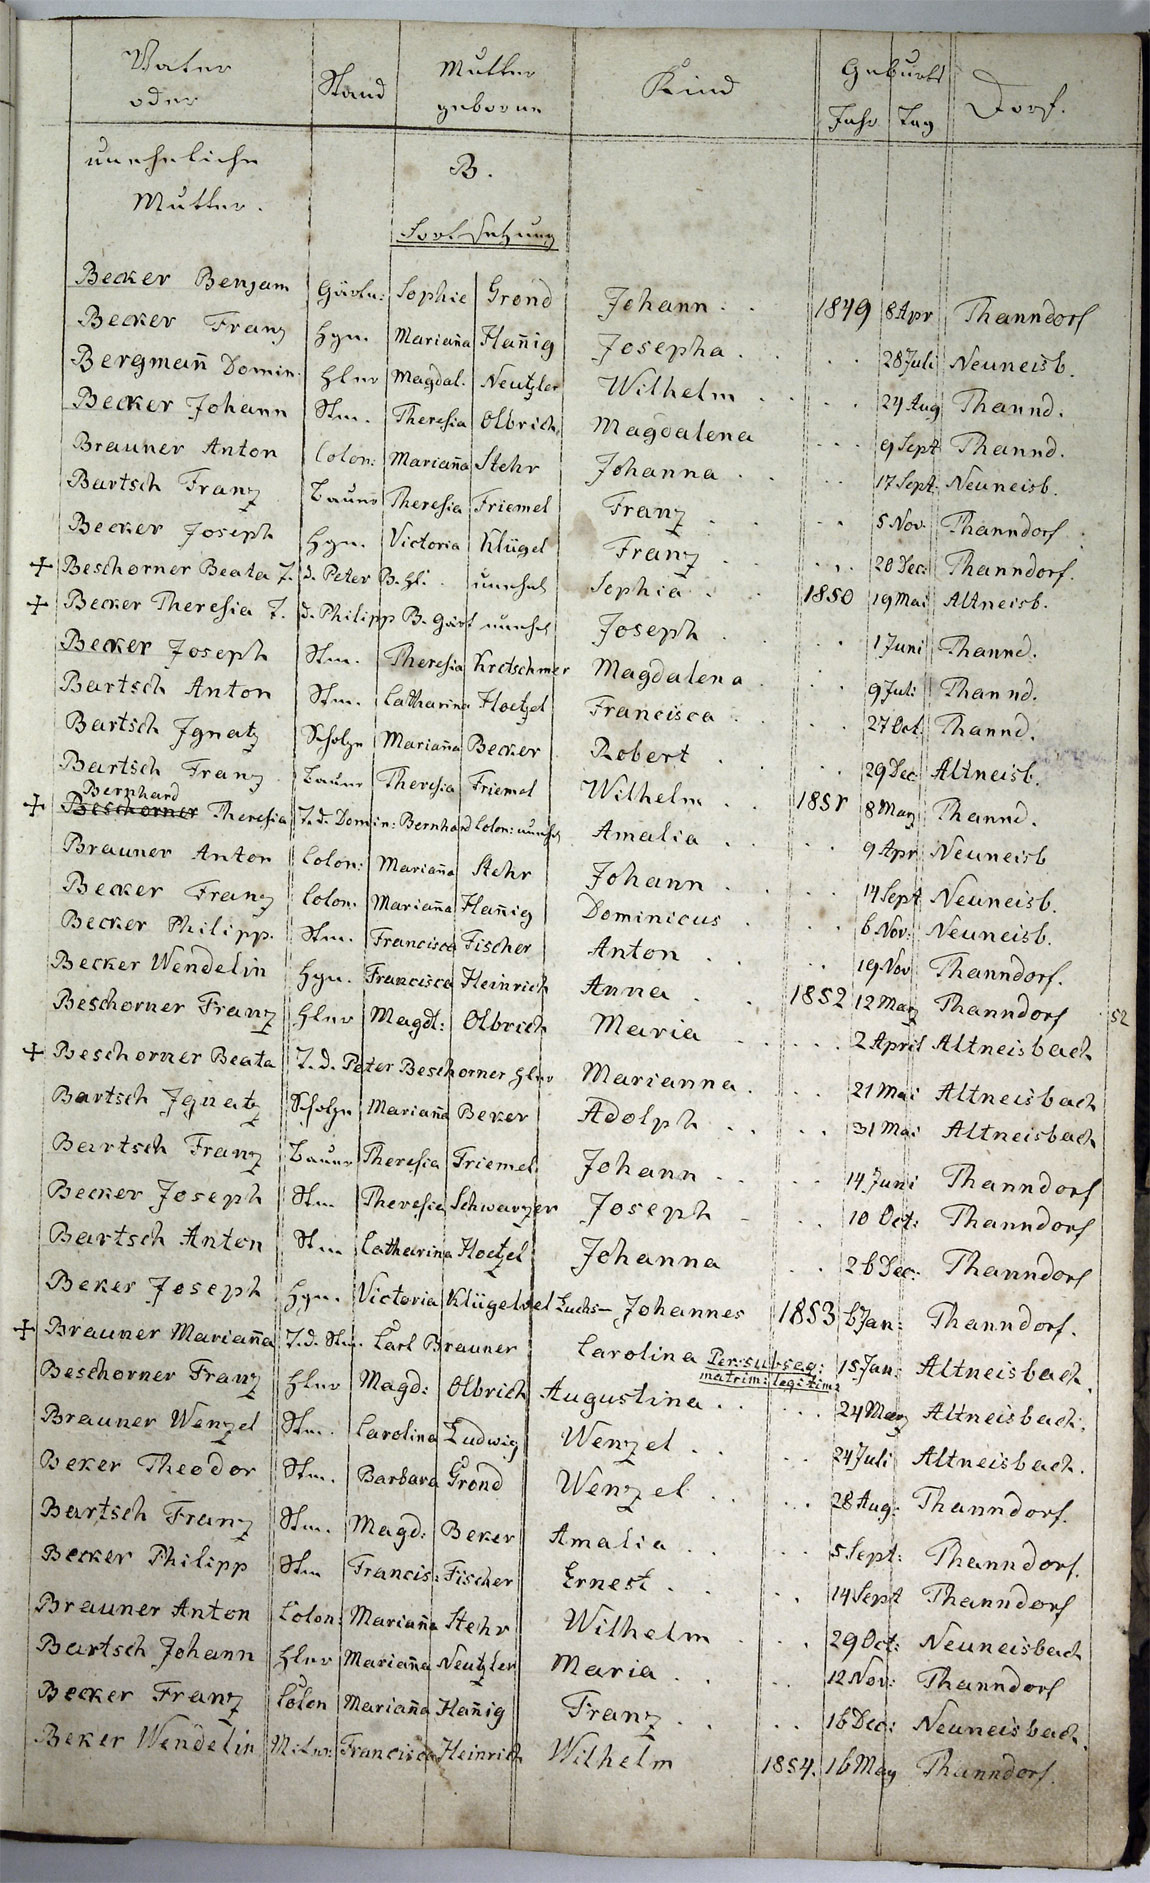 Vater oder Stand Mutter geborne Kind Geburts Jahr Tag Dorf.
uneheliche Mutter. B.
Fortsetzung
Becker Benjam Gärtn: Sophie Grond Johann . . 1849 8 Apr Thanndorf
Becker Franz Hgn. Mariana Hañig Josepha . . . . 28 Juli Neuneisb.
Bergmañ Domin. Hlnr Magdal. Neutzler Wilhelm . . . . 24 Aug Thannd.
Becker Johann Stm. Theresia Olbrich Magdalena . . . 9 Sept Thannd.
Brauner Anton Colon: Mariana Stehr Johanna . . . . 17 Sept. Neuneisb.
Bartsch Franz Bauer Theresia Friemel Franz . . . . 5 Nov. Thanndorf
Becker Joseph Hgn. Victoria Klügel Franz . . . . 20 Dec: Thanndorf.
+ Beschorner Beata T. d. Peter B. Hl. unehel Sophia . . 1850 19 Mai Altneisb.
+ Becker Theresia T. d. Philipp B. Gärt unehel Joseph . . . 1 Juni Thannd.
Becker Joseph Stm. Theresia Kretschmer Magdalena . . . 9 Juli Thannd.
Bartsch Anton Stm. Catharina Hoetzel Francisca . . . 27 Oct. Thannd.
Bartsch Ignatz Scholze Mariana Becker Robert . . . . 29 Dec Altneisb.
Bartsch Franz Bauer Theresia Friemel Wilhelm . . 1851 8 Marz Thannd.
Bernhard
+ Beschorner Theresia T. d. Domin: Bernhard Colon: unehel Amalia . . . . 9 Apr Neuneisb
Brauner Anton Colon: Mariana Stehr Johann . . . . 14 Sept Neuneisb.
Becker Franz Colon: Mariana Hañig Dominicus . . . 6 Nov: Neuneisb.
Becker Philipp. Stm. Francisca Fischer Anton . . . . 19 Nov Thanndorf.
Becker Wendelin Hgn. Francisca Heinrich Anna . . 1852 12 Marz Thanndorf 52
Beschorner Franz Hlnr Magdl: Olbrich Maria . . . . . 2 April Altneisbach
+ Beschorner Beata T. d. Peter Beschorner Hlnr Marianna . . . . 21 Mai Altneisbach
Bartsch Ignatz Scholze Mariana Beker Adolph . . . . 31 Mai Altneisbach
Bartsch Franz Bauer Theresia Friemel Johann . . . . 14 Juni Thanndorf
Becker Joseph Stm. Theresia Schwarzer Joseph . . . 10 Oct: Thanndorf
Bartsch Anton Stm. Catharina Hoetzel Johanna . . 26 Dec: Thanndorf
Beker Joseph Hgn. Victoria Klügel vel Luchs- Johannes 1853 6 Jan: Thanndorf.
+ Brauner Mariana T. d. Stm. Carl Brauner Carolina Per: subseq: matrim: legitim: 15 Jan: Altneisbach.
Beschorner Franz Hlnr Magd: Olbrich Augustina . . . . . 24 Marz Altneisbach.
Brauner Wenzel Stm. Carolina Ludwig Wenzel . . . . 24 Juli Altneisbach.
Beker Theodor Stm. Barbara Grond Wenzel . . . . 28 Aug: Thanndorf.
Bartsch Franz Stm. Magd: Beker Amalia . . . . 5 Sept: Thanndorf.
Becker Philipp Stm Francis: Fischer Ernest . . . . 14 Sept Thanndorf
Brauner Anton Colon: Mariana Stehr Wilhelm . . . . 29 Oct: Neuneisbach
Bartsch Johann Hlnr Mariana Neutzler Maria . . . . 12 Nov: Thanndorf
Becker Franz Colon Mariana Hañig Franz . . . . 16 Dec: Neuneisbach.
Beker Wendelin Francisca Heinrich Wilhelm 1854. 16 May Thanndorf.